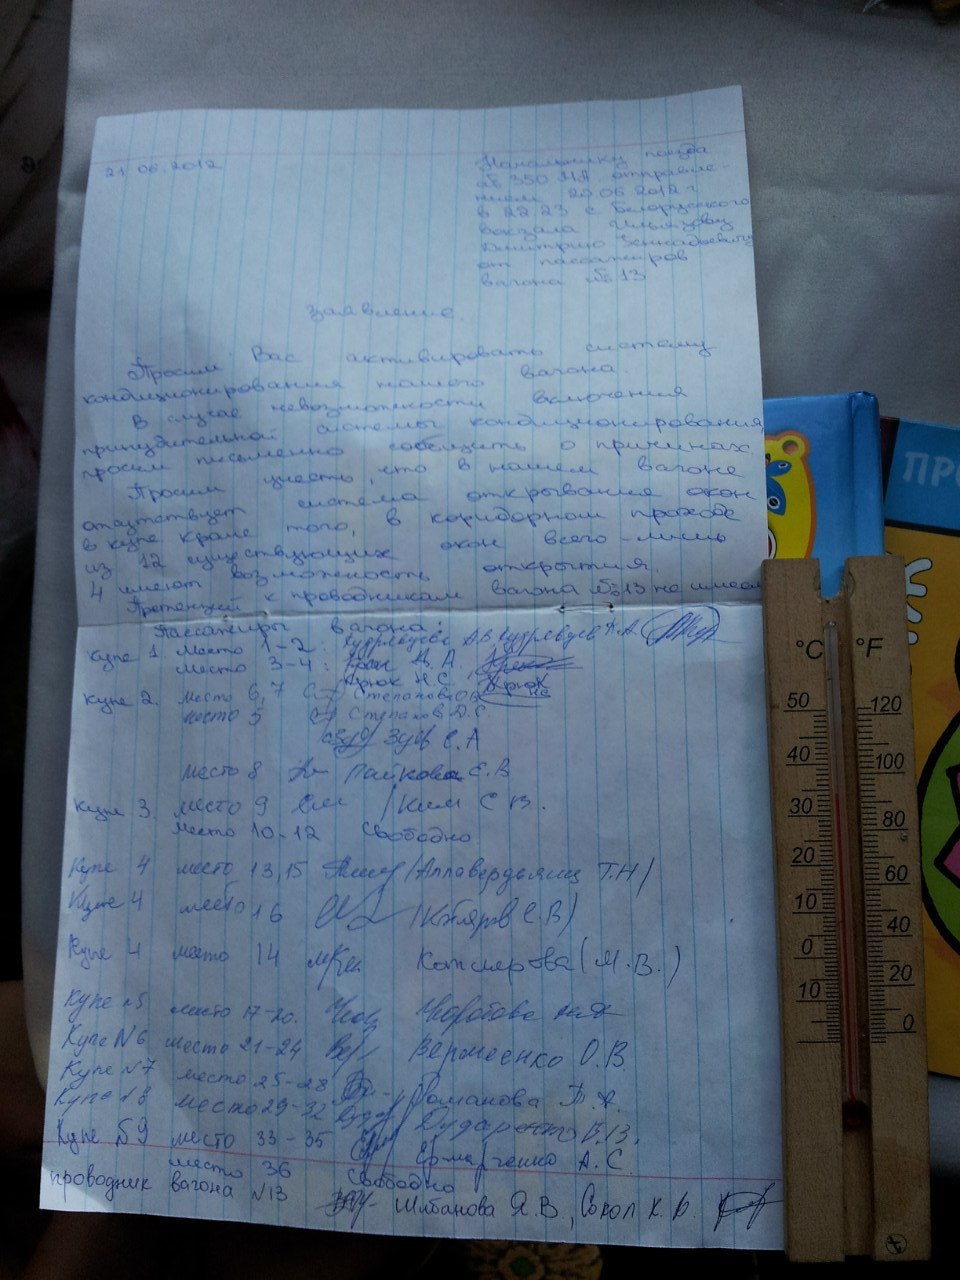 21.06.2012
Начальнику поезда
№ 350 МА отправле-
нием 20 06 2012 г
в 22 23 с Белорусского
вокзала
Дмитрию Геннадьевичу
от пассажиров
вагона № 13
Заявление.
Просим Вас активировать систему
кондиционирования нашего вагона.
В случае невозможности включения
принудительной системы кондиционирования,
просим письменно сообщить о причинах.
Просим учесть, что в нашем вагоне
отсутствует система открывания окон
в купе кроме того, в коридорном проходе
из 12 существующих окон всего-лишь
4 имеют возможность открытия.
Претензий к проводникам вагона № 13 не имеем
Пассажиры вагона:
Купе 1 место 1-2: Кудрявцева А В Кудрявцев А.А.
место 3-4: Крюк А. А.
Крюк Н.С. Крюк
Купе 2. место 6, 7 Степанова О.В.
место 5 Степанов Д.С.
Зуев С.А
место 8 Райкова Е.В
Купе 3 место 9 /Ким С В.
место 10-12 Свободно
Купе 4 место 13, 15 /Аллавердьянц Т.Н/
Купе 4 место 16 /Котляров С.В)
Купе 4 место 14 (М.В.)
Купе №5 место 17-20.
Купе №6 место 21-24 О.В.
Купе №7 место 25-28 Романова
Купе №8 место 29-32
Купе №9 место 33-35 Ермарченко А.С.
место 36 Свободно
проводник вагона №13 Шибанова Я.В., Сокол К.
ПРО
°C °F
50 120
40 100
30 80
20 60
10 40
0 20
10 0